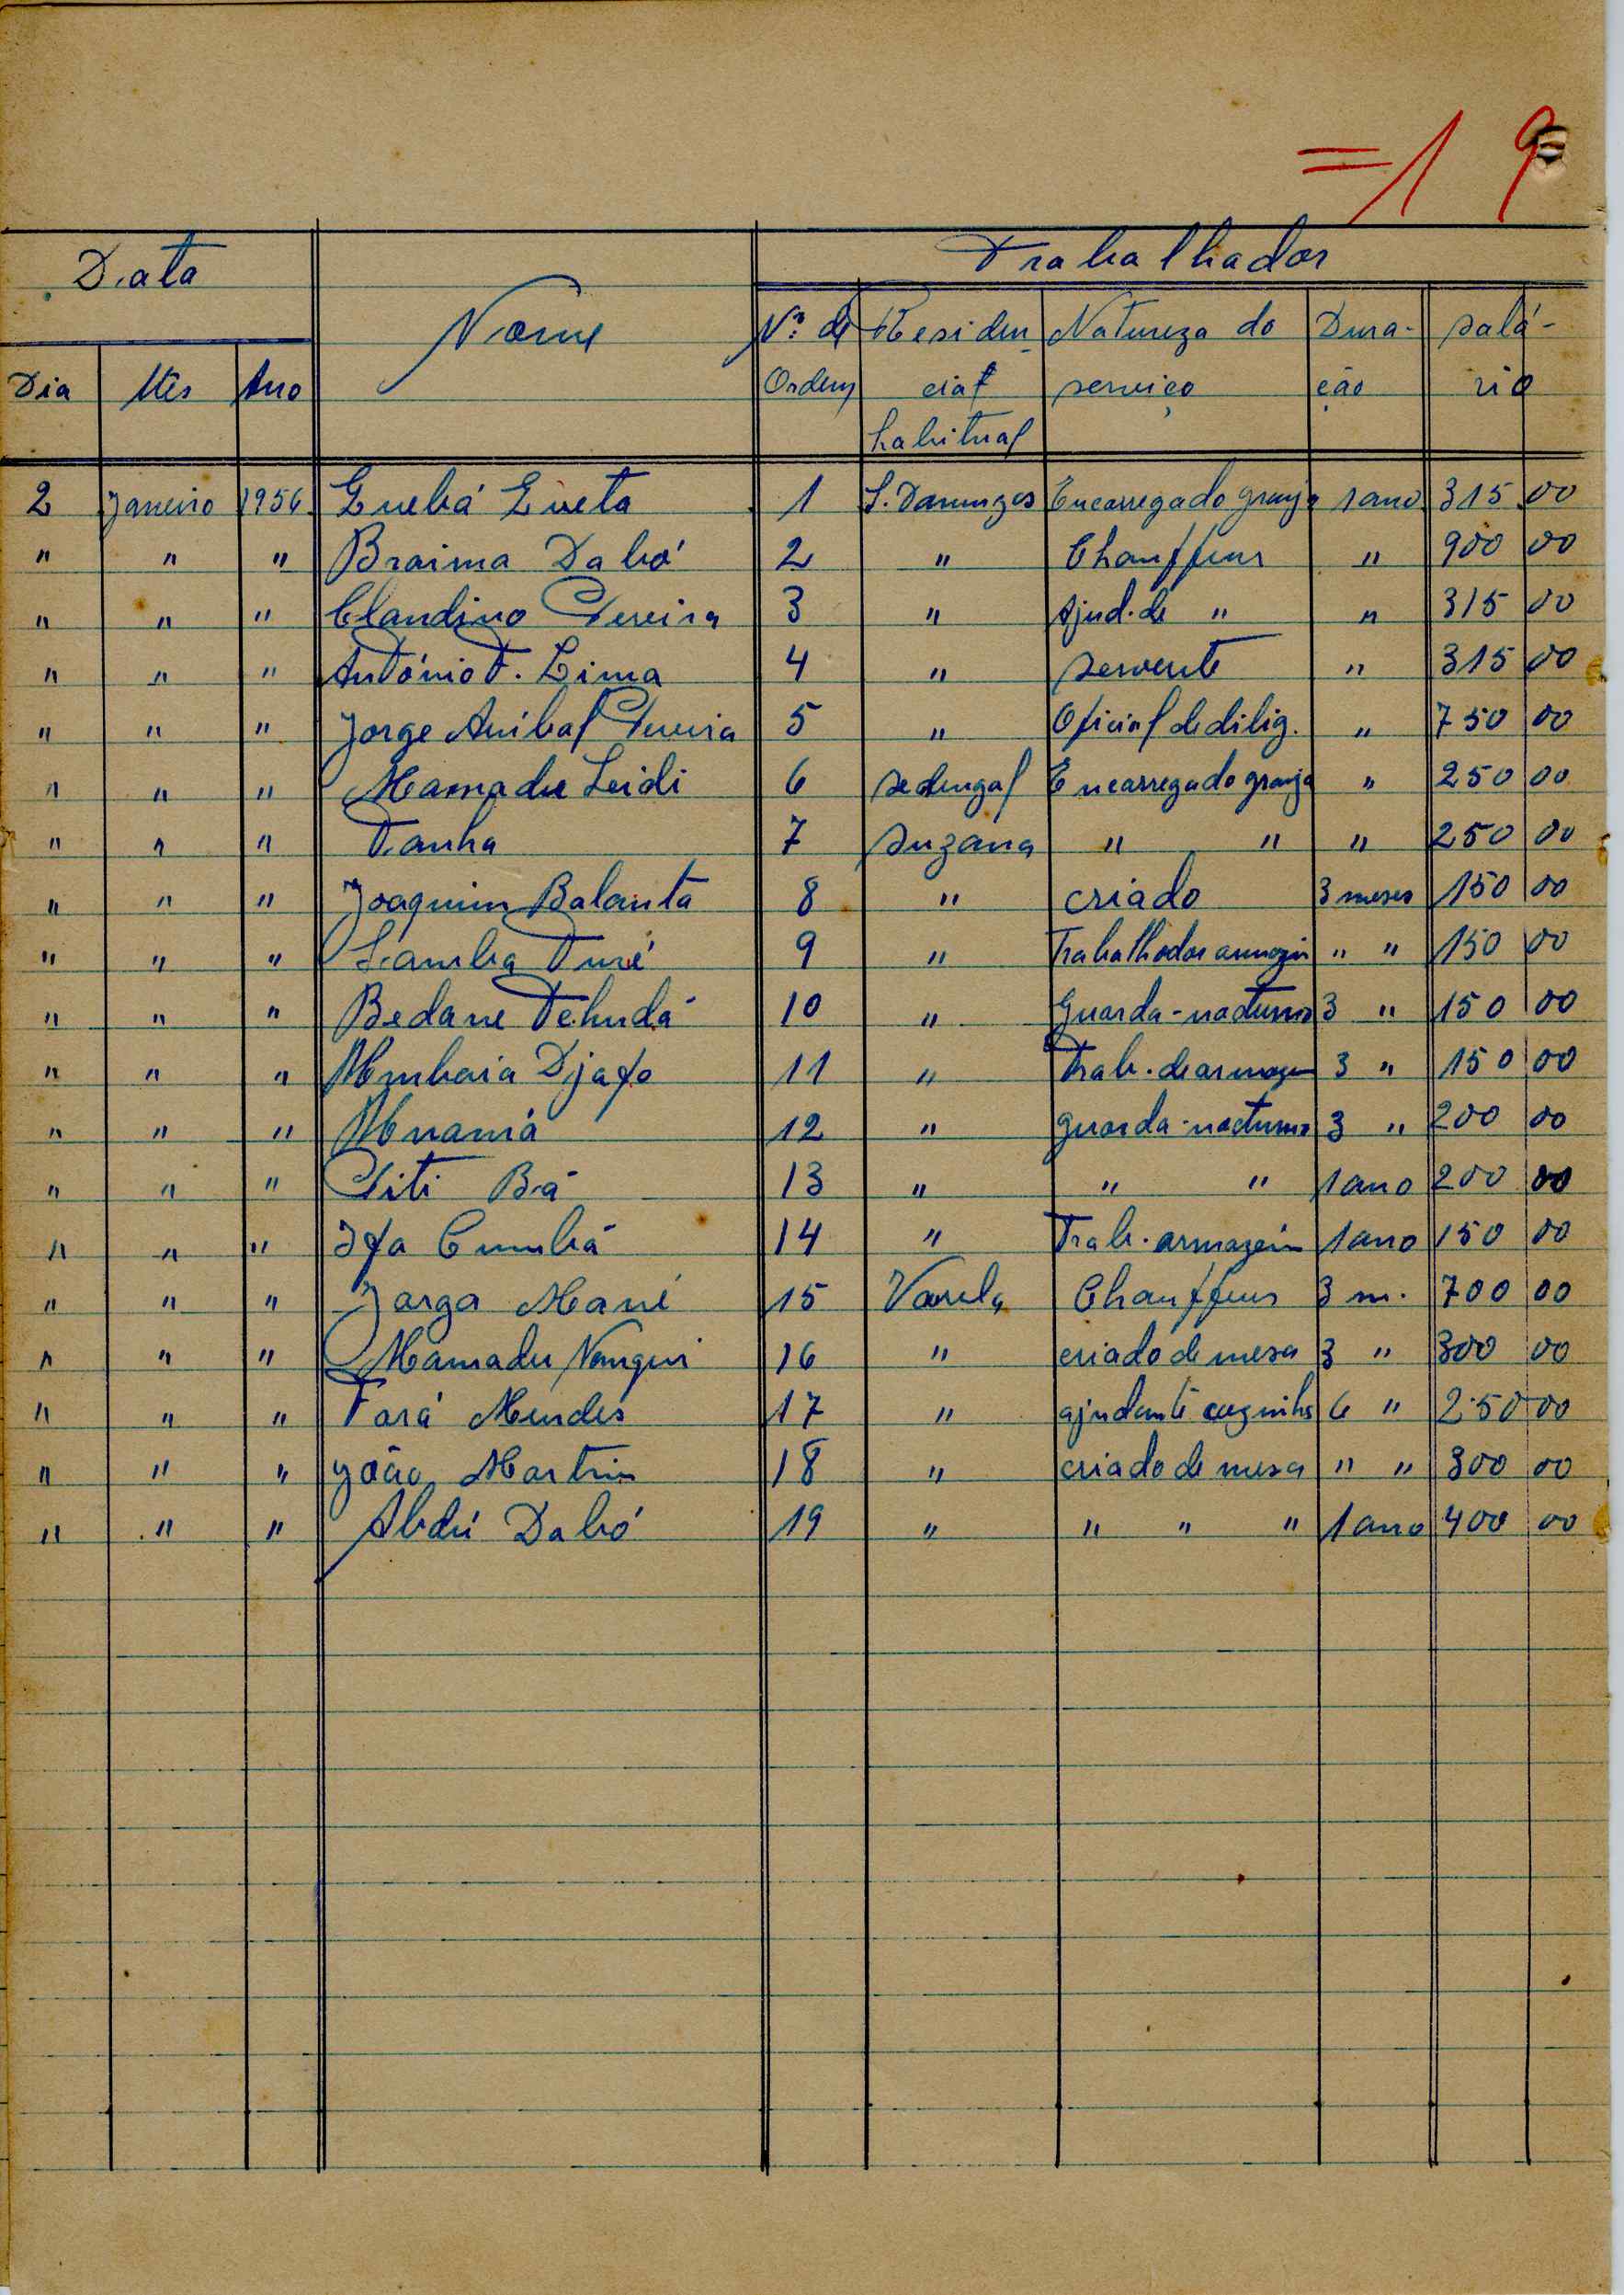 = 1 9
Data Nome Trabalhador
Dia Mês Ano Nº de Ordem Residencial habitual Natureza do serviço Duração salário
2 Janeiro 1956 1 S. Domingos Encarregado granja 1 ano 315 00
" " " Braima Dabó 2 " Chauffeur " 900 00
" " " Claudino Pereira 3 " Ajud. de " " 315 00
" " " António T. Lima 4 " servente " 315 00
" " " Jorge Anibal Pereira 5 " Oficial de dilig. " 750 00
" " " Mamadu Seidi 6 sedengal Encarregado granja " 250 00
" " " Tanha 7 suzana " " " 250 00
" " " Joaquim Balanta 8 " criado 3 meses 150 00
" " " Samba Turé 9 " Trabalhador armazém " " 150 00
" " " Bedane Tchudá 10 " Guarda-nocturno 3 " 150 00
" " " Djafo 11 " Trab. de armazem 3 " 150 00
" " " 12 " guarda-nocturno 3 " 200 00
" " " Siti Bá 13 " " " 1 ano 200 00
" " " Ifa Cumbá 14 " Trab. armazém 1 ano 150 00
" " " Jorga Mané 15 Varela Chauffeur 3 m. 700 00
" " " Mamadu 16 " criado de mesa 3 " 300 00
" " " Fará Mendes 17 " ajudante cozinha 6 " 250 00
" " " João Martins 18 " criado de mesa " " 300 00
" " " Abdú Dabó 19 " " " " 1 ano 400 00